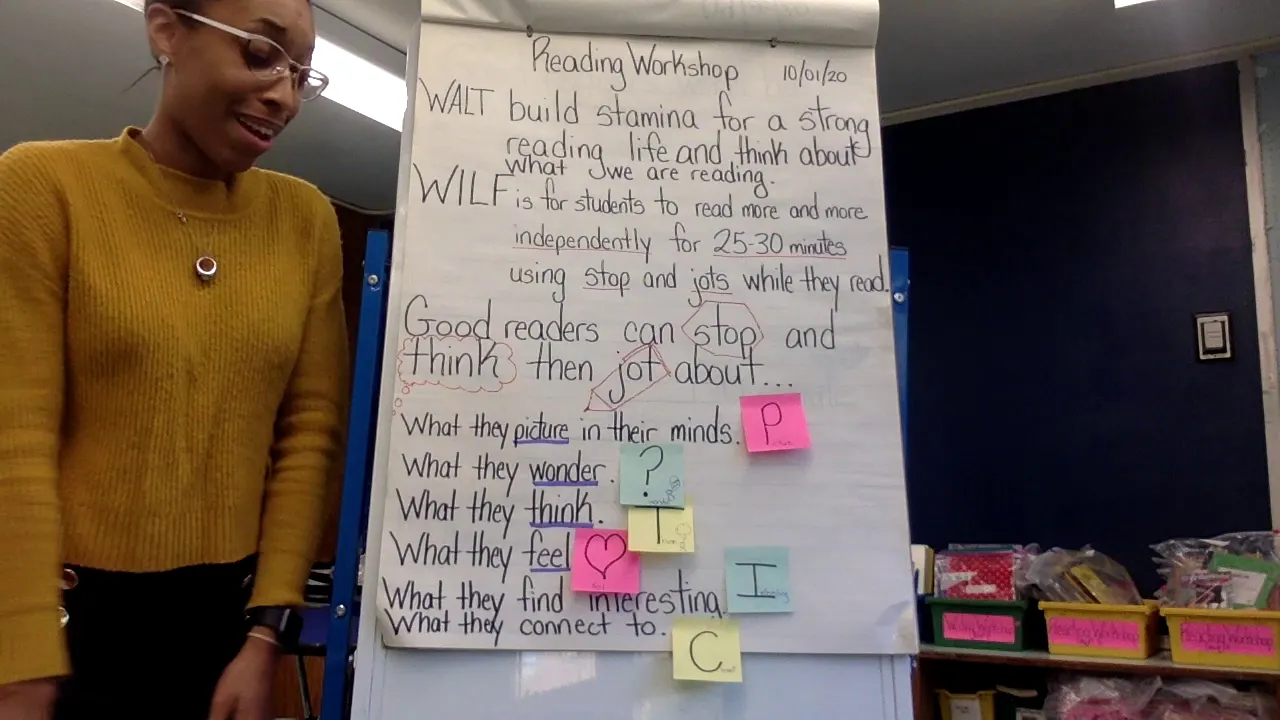 Reading Workshop 10/01/20
WALT build stamina for a strong
reading life and think about
what we are reading.
WILF is for students to read more and more
independently for 25-30 minutes
using stop and jots while they read.
Good readers can stop and
think then jot about...
What they picture in their minds. P
What they wonder. ?
What they think. T
What they feel
What they find interesting. I
What they connect to. C
Reading Workshop
Reading Workshop